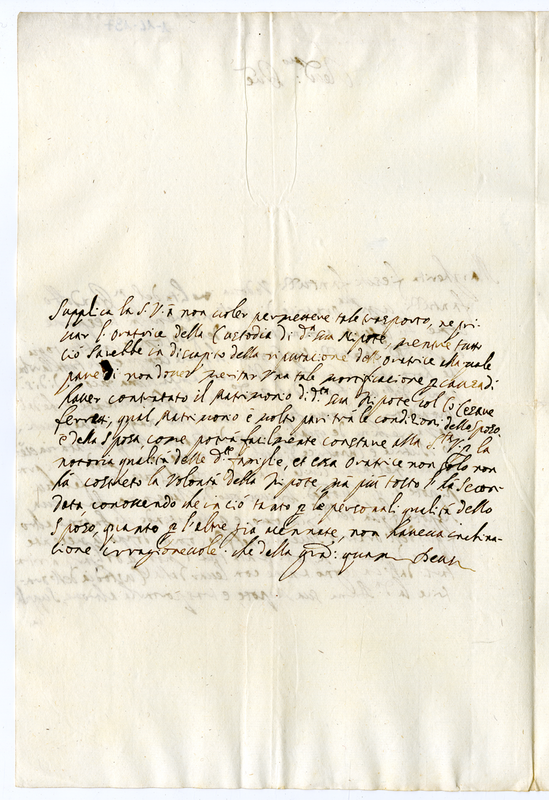 Supplica la S. V.ª à non voler permettere tale trasporto, ne pri-
var l'Oratrice della Custodia di d.ª sua Nipote, mentre tutto
ciò sarebbe in discapito della riputazione dell'Oratrice alla quale
pare di non dover meritar una tale mortificazione p causa di
haver contratato il Matrimonio di d.ª sua Nipote col Co: Cesare
Ferretti, qual Matrimonio è molto pari tra le condizioni dello sposo,
e della Sposa come potrà facilmente constare alla S. V. p la
notoria qualità delle d.e famiglie, et essa Oratrice non solo non
hà costretto la Volontà della Nipote, ma più tosto l'hà secon-
data, conoscendo che in ciò tanto p le personali qualità dello
Sposo, quanto p l'altre già accennate, non haveva inclina-
zione irragionevole. che della gra: quam Deus